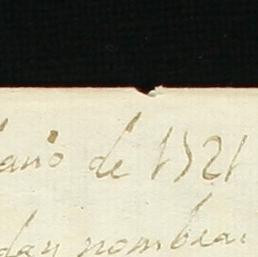 año de 1521
dan nombrar